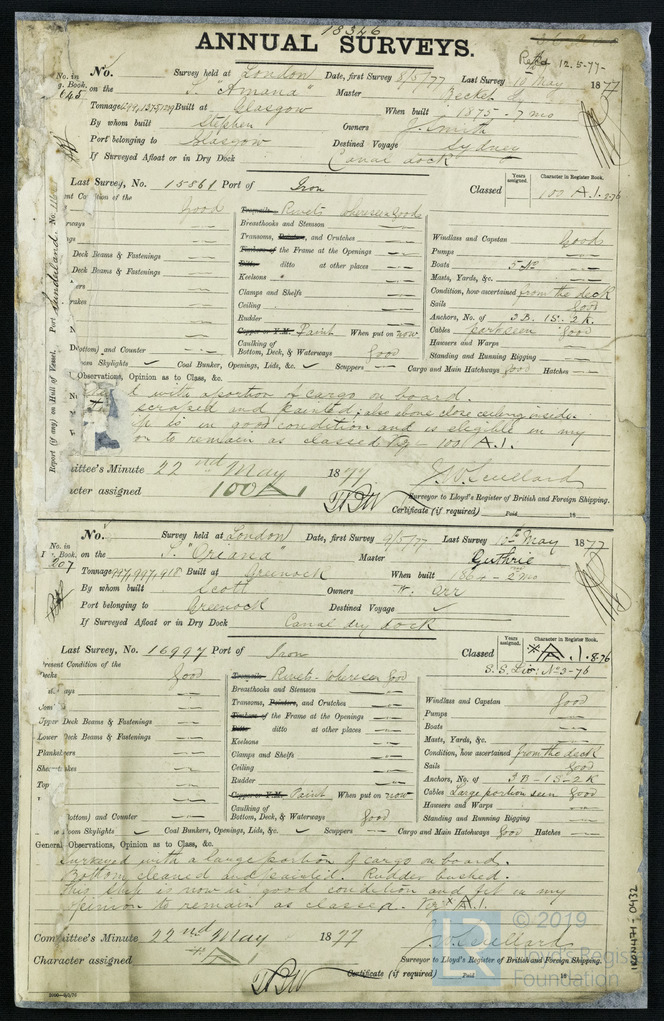 18346
ANNUAL SURVEYS.
Recd 12.5-77-
No. in g. Book. 145
No. Survey held at London Date, first Survey 8/5/77 Last Survey 10 May 1877
on the S. "Amana" Master Becket
Tonnage Built at Glasgow When built 1875 - 7 mo
By whom built Stephen Owners J. Smith
Port belonging to Glasgow Destined Voyage Sydney
If Surveyed Afloat or in Dry Dock Canal dock
Last Survey, No. 15561 Port of Iron Classed Years assigned. Character in Register Book. 100 A.1. 8-76
nt Condition of the good
Deck Beams & Fastenings
Deck Beams & Fastenings
ottom) and Counter
om Skylights Coal Bunkers, Openings, Lids, &c. Scuppers Cargo and Main Hatchways good Hatches
Treenails Rivets where seen good
Breasthooks and Stemson
Transoms, Pointers, and Crutches
Timbers of the Frame at the Openings
Ditto ditto at other places
Keelsons
Clamps and Shelfs
Ceiling
Rudder
Copper or Y.M. Paint When put on now
Caulking of Bottom, Deck, & Waterways good
Windlass and Capstan Good
Pumps
Boats 5
Masts, Yards, &c.
Condition, how ascertained from the deck
Sails good
Anchors, No. of 3 B. 1 S. 2 K.
Cables Part seen good
Hawsers and Warps
Standing and Running Rigging
Report (if any) on Hull of Vessel. Port Sunderland. No.
Observations, Opinion as to Class, &c.
with a portion of cargo on board.
scraped and painted, also above close ceiling inside.
p is in good condition and is eligible in my
on to remain as classed Viz - 100 A.1.
mittee's Minute 22nd May 1877
acter assigned 100 A 1
Surveyor to Lloyd's Register of British and Foreign Shipping.
Certificate (if required) Paid 18
No. in Book. 207
No. Survey held at London Date, first Survey 9/5/77 Last Survey 10th May 1877
on the S. "Oriana" Master Guthrie
Tonnage 997,997,918 Built at Greenock When built 1864 - 2 mo
By whom built Scott Owners Orr
Port belonging to Greenock Destined Voyage
If Surveyed Afloat or in Dry Dock Canal dry dock
Last Survey, No. 16997 Port of Iron Classed Years assigned. Character in Register Book. A.1. 8-76
S.S. Liv: No 3-76
Present Condition of the good
Decks
Upper Deck Beams & Fastenings
Lower Deck Beams & Fastenings
Top
ottom) and Counter
om Skylights Coal Bunkers, Openings, Lids, &c. Scuppers Cargo and Main Hatchways good Hatches
Treenails Rivets where seen good
Breasthooks and Stemson
Transoms, Pointers, and Crutches
Timbers of the Frame at the Openings
Ditto ditto at other places
Keelsons
Clamps and Shelfs
Ceiling
Rudder
Copper or Y.M. Paint When put on now
Caulking of Bottom, Deck, & Waterways good
Windlass and Capstan Good
Pumps
Boats
Masts, Yards, &c.
Condition, how ascertained from the deck
Sails good
Anchors, No. of 3 B - 1 S - 2 K
Cables Large portion seen good
Hawsers and Warps
Standing and Running Rigging
General Observations, Opinion as to Class, &c.
Surveyed with a large portion of cargo on board.
Bottom cleaned and painted. Rudder bushed.
This ship is now in good condition and fit in my
opinion to remain as classed. Viz A.1.
Committee's Minute 22nd May 1877
Character assigned
Surveyor to Lloyd's Register of British and Foreign Shipping.
Certificate (if required) Paid 18
IRON471-0432
© 2019
LR Lloyd's Register
Foundation